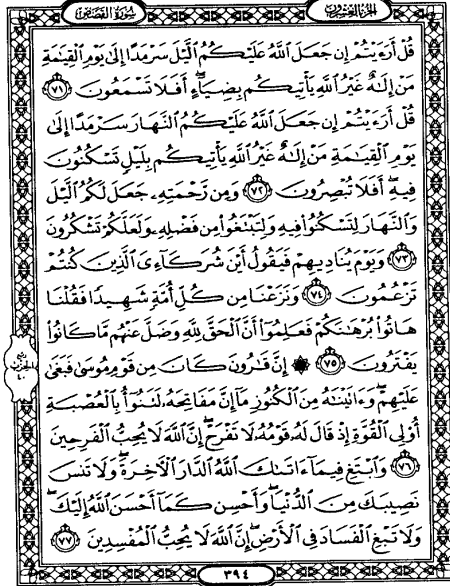 الجزء العشرون سورة القصص
قُلْ أَرَءَيْتُمْ إِن جَعَلَ ٱللَّهُ عَلَيْكُمُ ٱلَّيْلَ سَرْمَدًا إِلَىٰ يَوْمِ ٱلْقِيَٰمَةِ
مَنْ إِلَٰهٌ غَيْرُ ٱللَّهِ يَأْتِيكُم بِضِيَآءٍ ۖ أَفَلَا تَسْمَعُونَ ٧١
قُلْ أَرَءَيْتُمْ إِن جَعَلَ ٱللَّهُ عَلَيْكُمُ ٱلنَّهَارَ سَرْمَدًا إِلَىٰ
يَوْمِ ٱلْقِيَٰمَةِ مَنْ إِلَٰهٌ غَيْرُ ٱللَّهِ يَأْتِيكُم بِلَيْلٍ تَسْكُنُونَ
فِيهِ ۖ أَفَلَا تُبْصِرُونَ ٧٢ وَمِن رَّحْمَتِهِۦ جَعَلَ لَكُمُ ٱلَّيْلَ
وَٱلنَّهَارَ لِتَسْكُنُوا۟ فِيهِ وَلِتَبْتَغُوا۟ مِن فَضْلِهِۦ وَلَعَلَّكُمْ تَشْكُرُونَ
٧٣ وَيَوْمَ يُنَادِيهِمْ فَيَقُولُ أَيْنَ شُرَكَآءِىَ ٱلَّذِينَ كُنتُمْ
تَزْعُمُونَ ٧٤ وَنَزَعْنَا مِن كُلِّ أُمَّةٍ شَهِيدًا فَقُلْنَا
هَاتُوا۟ بُرْهَٰنَكُمْ فَعَلِمُوٓا۟ أَنَّ ٱلْحَقَّ لِلَّهِ وَضَلَّ عَنْهُم مَّا كَانُوا۟
يَفْتَرُونَ ٧٥ ۞ إِنَّ قَٰرُونَ كَانَ مِن قَوْمِ مُوسَىٰ فَبَغَىٰ
عَلَيْهِمْ ۖ وَءَاتَيْنَٰهُ مِنَ ٱلْكُنُوزِ مَآ إِنَّ مَفَاتِحَهُۥ لَتَنُوٓأُ بِٱلْعُصْبَةِ
أُو۟لِى ٱلْقُوَّةِ إِذْ قَالَ لَهُۥ قَوْمُهُۥ لَا تَفْرَحْ ۖ إِنَّ ٱللَّهَ لَا يُحِبُّ ٱلْفَرِحِينَ
٧٦ وَٱبْتَغِ فِيمَآ ءَاتَىٰكَ ٱللَّهُ ٱلدَّارَ ٱلْءَاخِرَةَ ۖ وَلَا تَنسَ
نَصِيبَكَ مِنَ ٱلدُّنْيَا ۖ وَأَحْسِن كَمَآ أَحْسَنَ ٱللَّهُ إِلَيْكَ ۖ
وَلَا تَبْغِ ٱلْفَسَادَ فِى ٱلْأَرْضِ ۖ إِنَّ ٱللَّهَ لَا يُحِبُّ ٱلْمُفْسِدِينَ ٧٧
ربع
الحزب
٤٠
٣٩٤